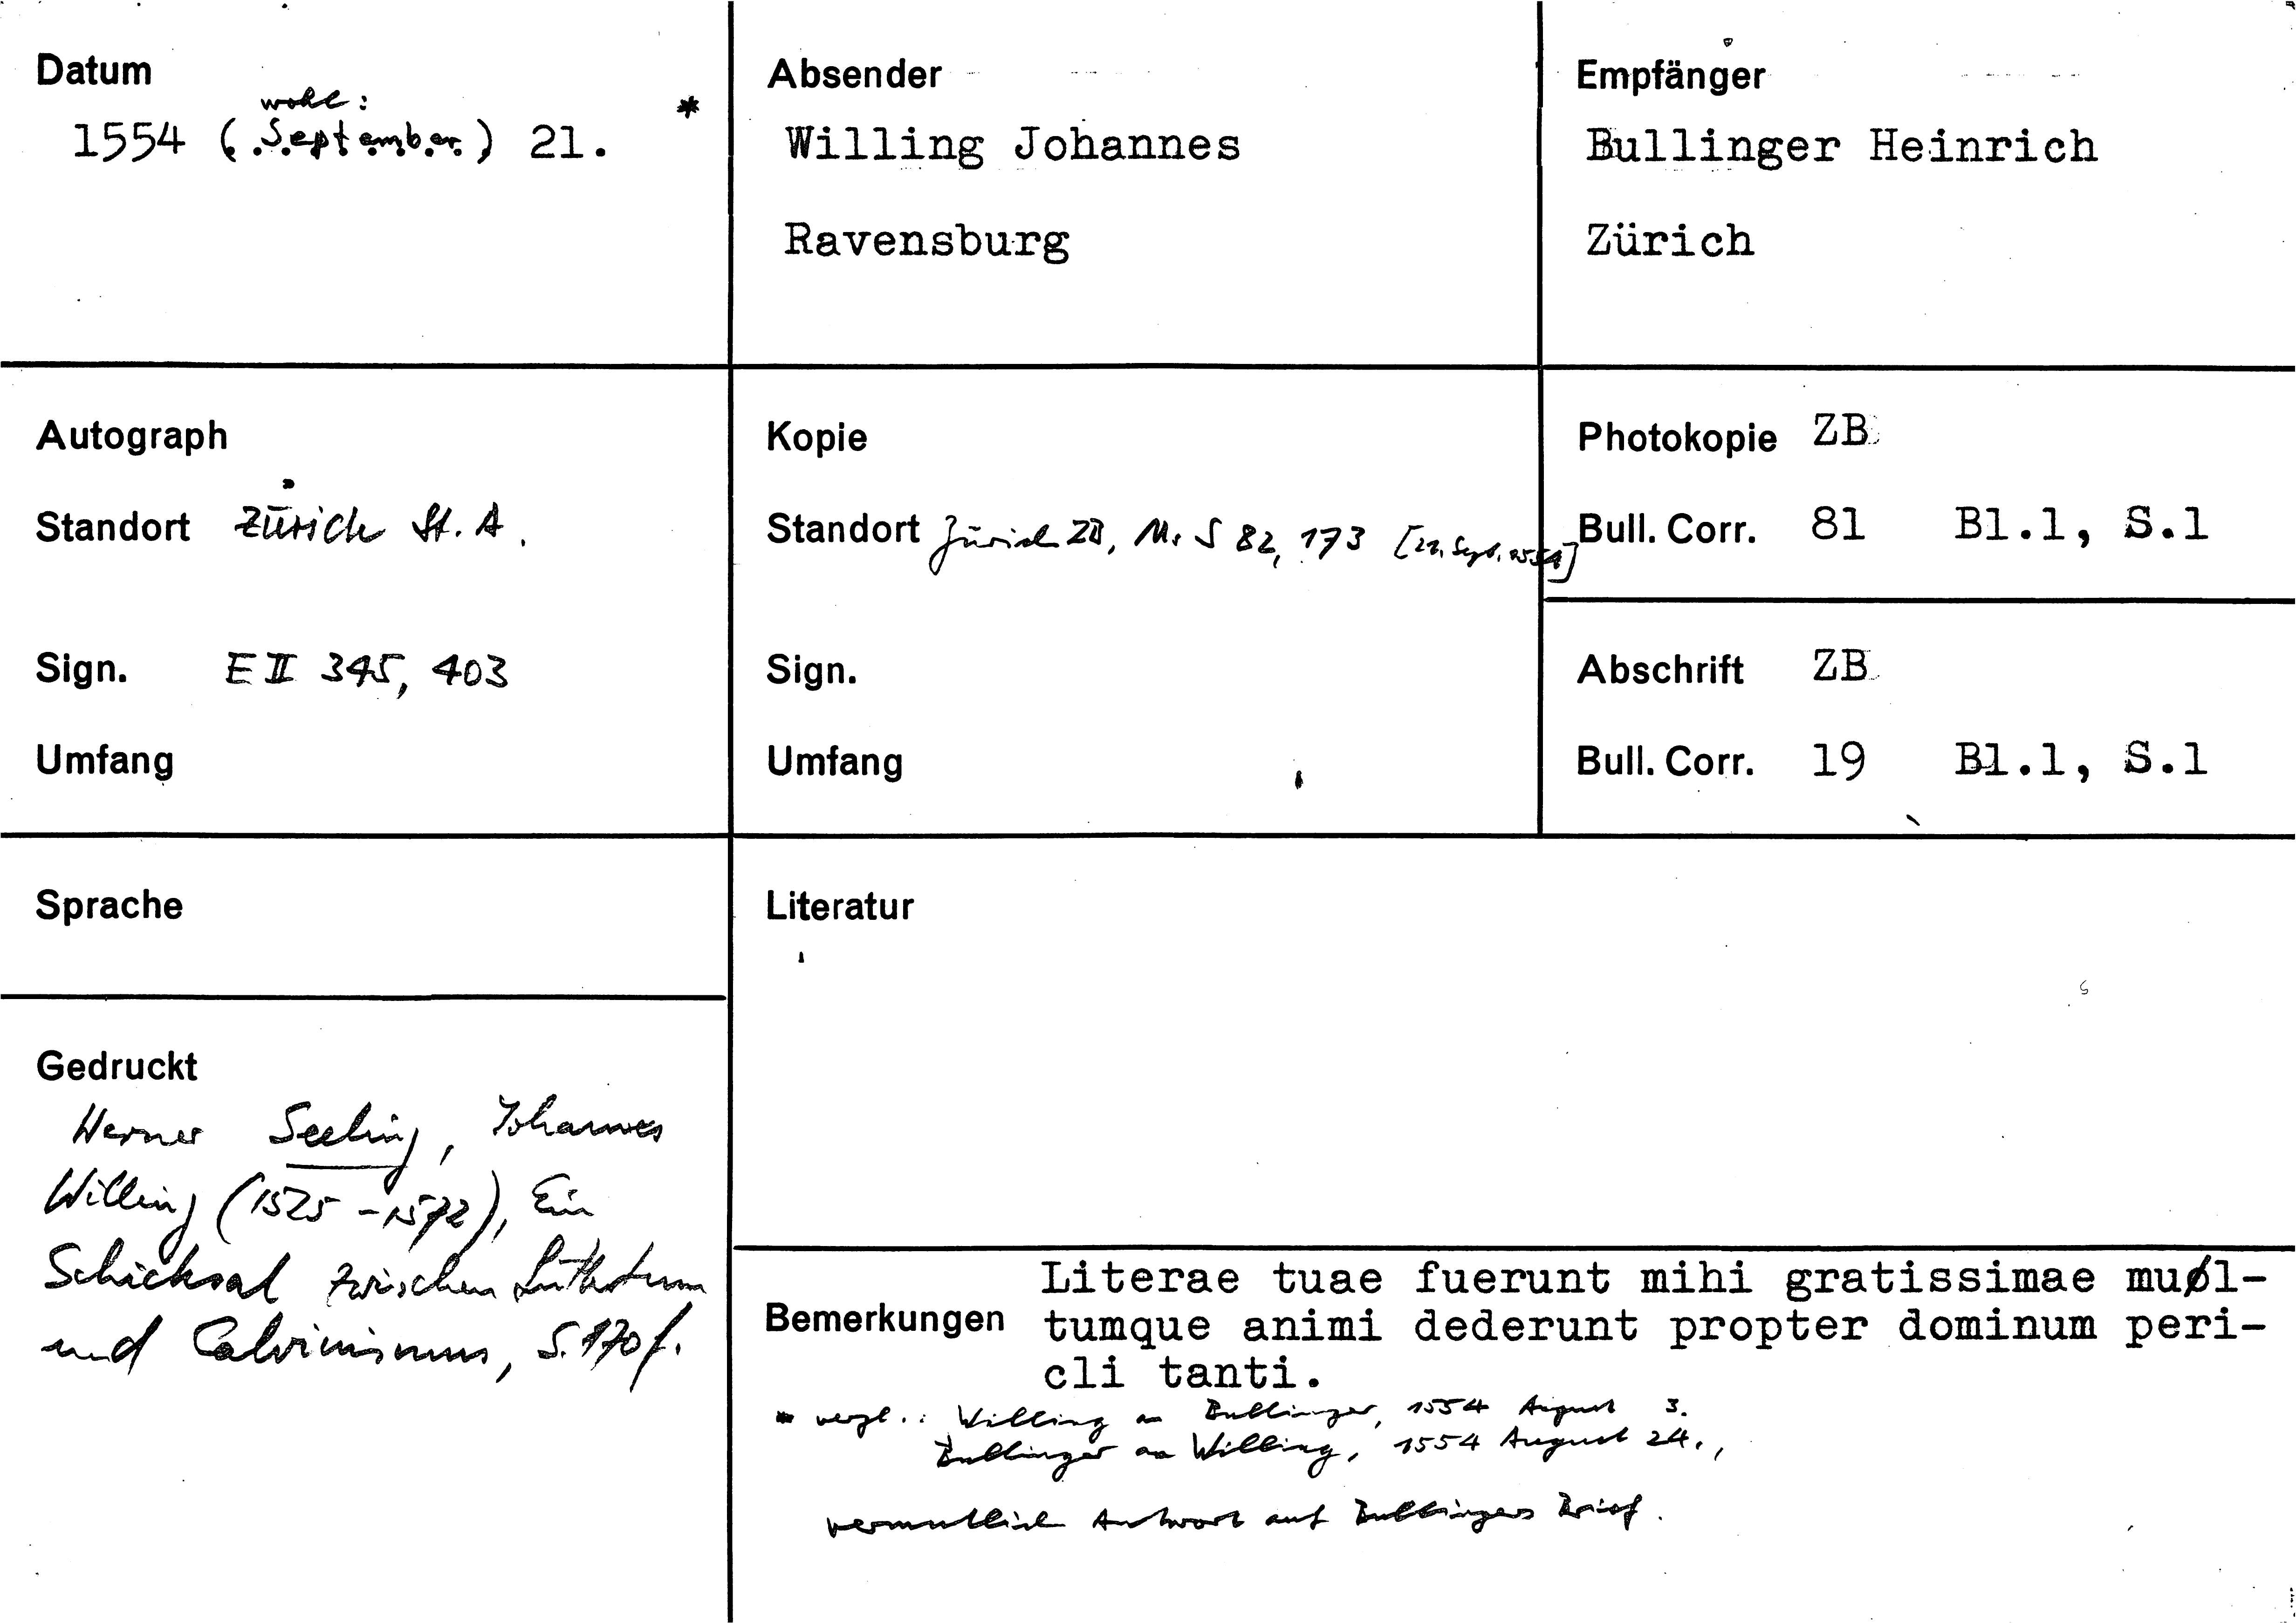 Datum
wohl:
1554 (September) 21. *
Absender
Willing Johannes
Ravensburg
Empfänger
Bullinger Heinrich
Zürich
Autograph
Standort Zürich St. A.
Sign. E II 345, 403
Umfang
Kopie
Standort Zürich ZB, Ms S 82, 173 [21. Sept. 1554]
Sign.
Umfang
Photokopie ZB
Bull. Corr. 81 Bl.1, S.1
Abschrift ZB
Bull. Corr. 19 Bl.1, S.1
Sprache
Gedruckt
Werner Seeling, Johannes
Willing (1525-1572), Ein
Schicksal zwischen Luthertum
und Calvinismus, S. 170 f.
Literatur
Bemerkungen
Literae tuae fuerunt mihi gratissimae muøl-
tumque animi dederunt propter dominum peri-
cli tanti.
* vergl.: Willing an Bullinger, 1554 August 3.
Bullinger an Willing, 1554 August 24.,
vermutlich Antwort auf Bullingers Brief.